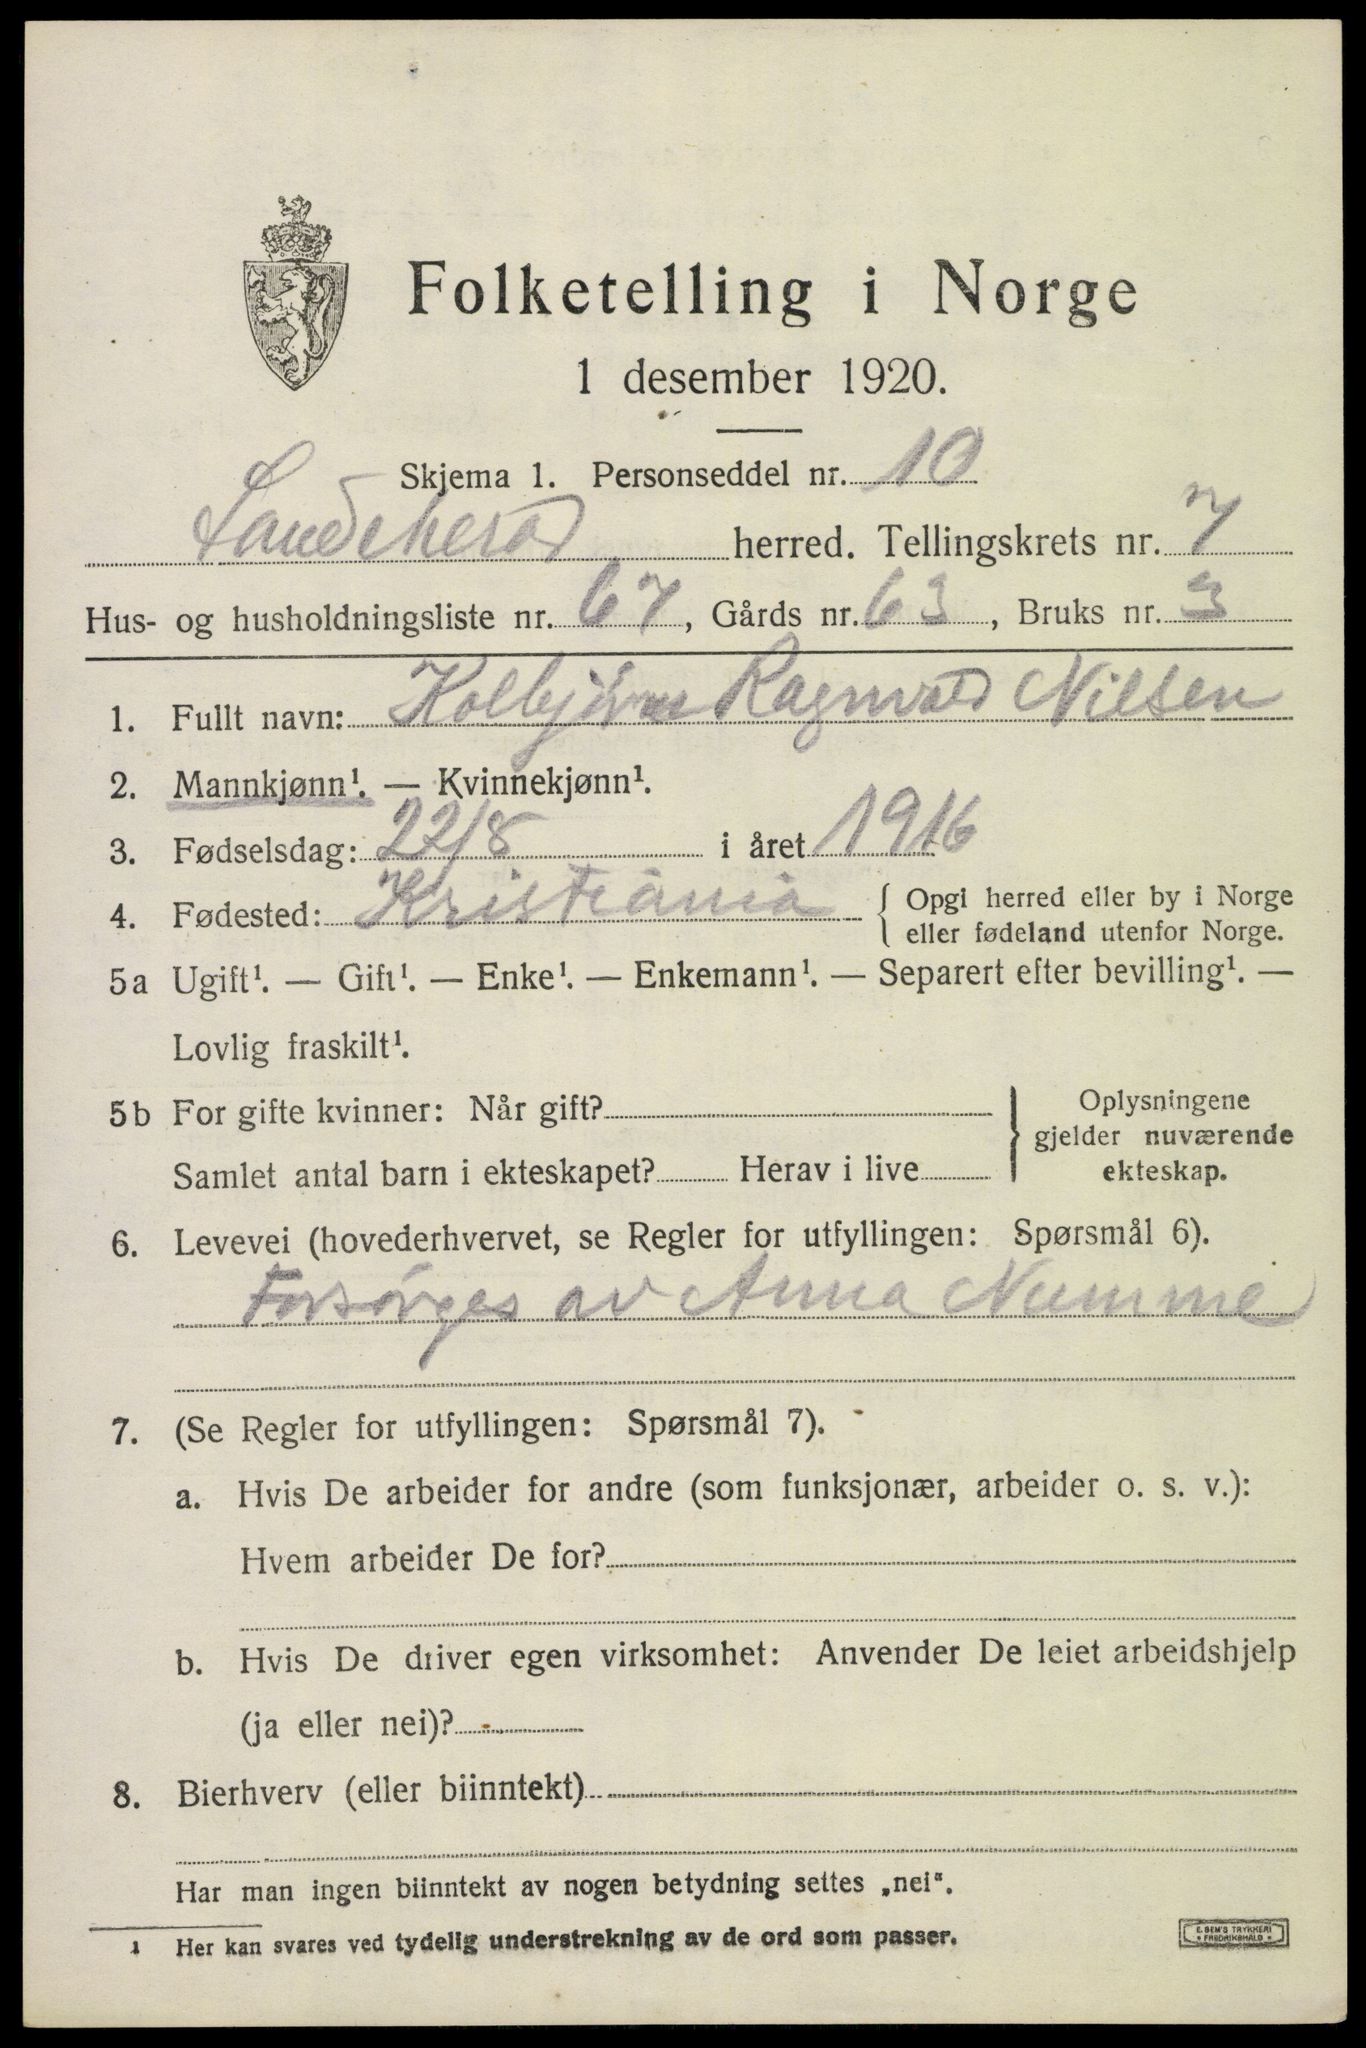 Folketelling i Norge
1 desember 1920.
Skjema 1. Personseddel nr. 10
Sandeherad herred. Tellingskrets nr. 7
Hus- og husholdningsliste nr. 67, Gårds nr. 63, Bruks nr. 3
1. Fullt navn: Kolbjörn Ragnvald Nilsen
2. Mannkjønn¹. — Kvinnekjønn¹.
3. Fødselsdag: 22/8 i året 1916
4. Fødested: Kristiania { Opgi herred eller by i Norge
eller fødeland utenfor Norge.
5a Ugift¹. — Gift¹. — Enke¹. — Enkemann¹. — Separert efter bevilling¹. —
Lovlig fraskilt¹.
5b For gifte kvinner: Når gift?
Samlet antal barn i ekteskapet? Herav i live
} Oplysningene
gjelder nuværende
ekteskap.
6. Levevei (hovederhvervet, se Regler for utfyllingen: Spørsmål 6).
Forsörges av Anna Numme
7. (Se Regler for utfyllingen: Spørsmål 7).
a. Hvis De arbeider for andre (som funksjonær, arbeider o. s. v.):
Hvem arbeider De for?
b. Hvis De driver egen virksomhet: Anvender De leiet arbeidshjelp
(ja eller nei)?
8. Bierhverv (eller biinntekt)
Har man ingen biinntekt av nogen betydning settes „nei".
¹ Her kan svares ved tydelig understrekning av de ord som passer.
E. SEM'S TRYKKERI
• FREDRIKSHALD •